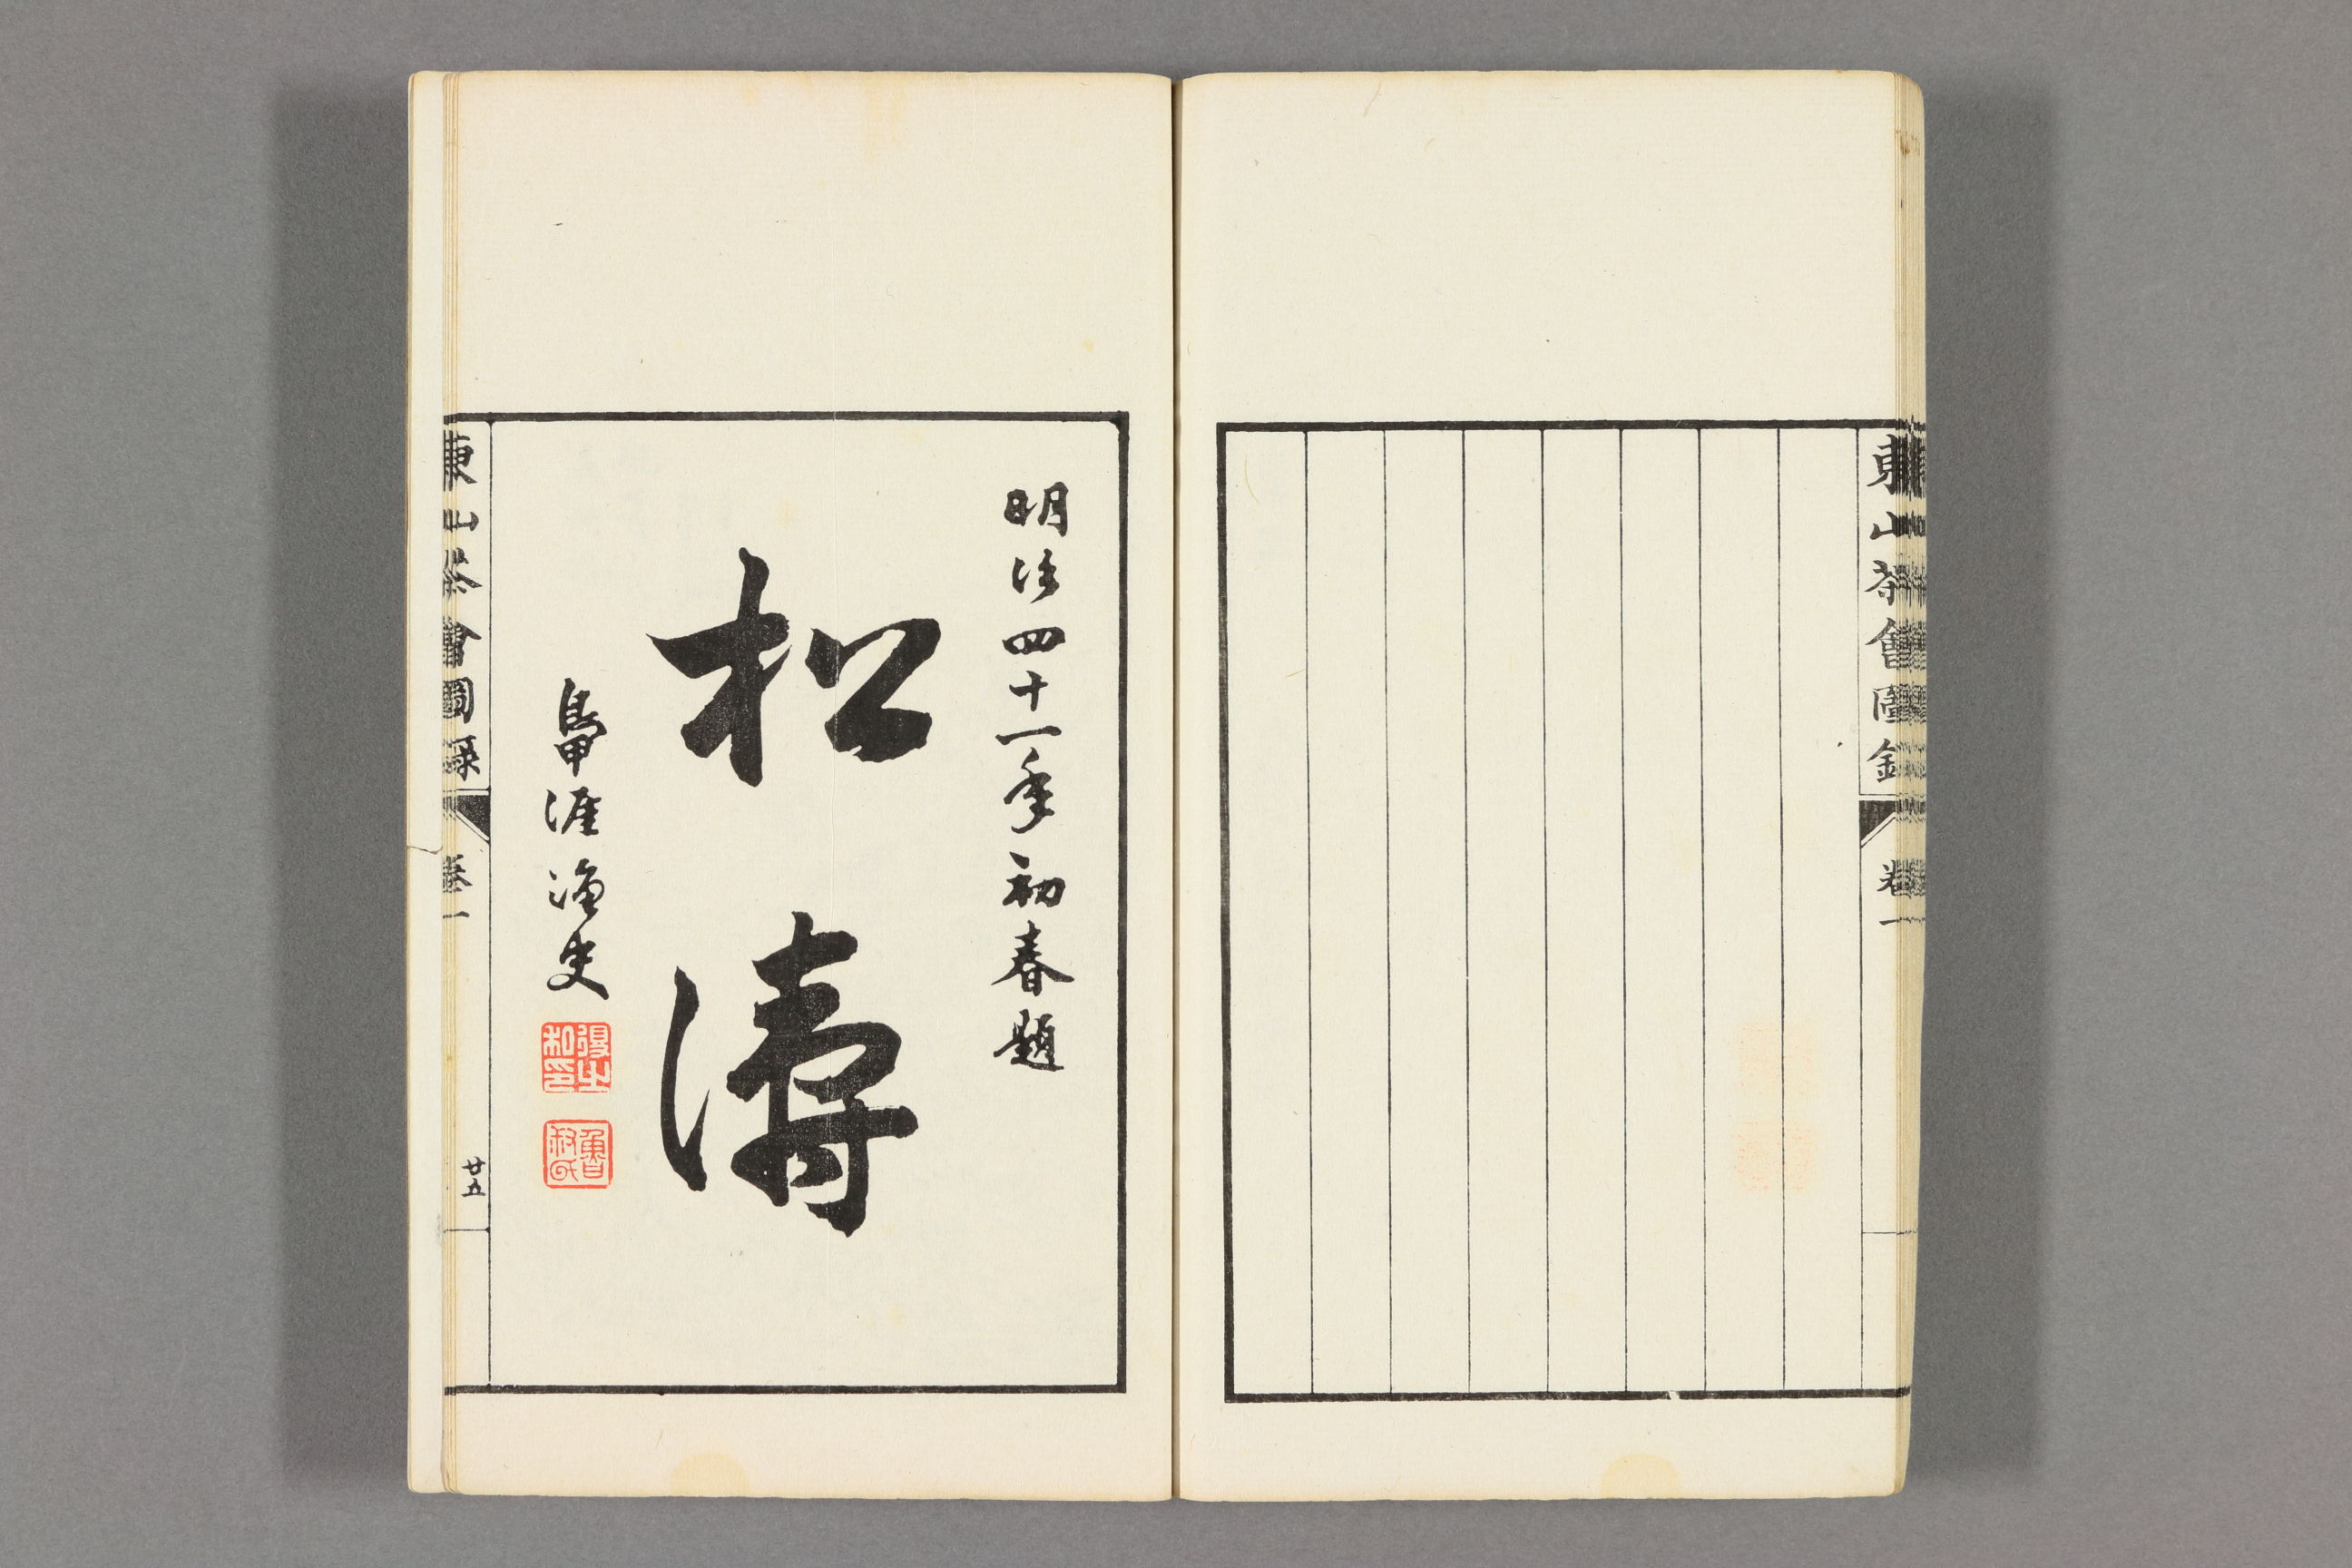 東山茶會圖錄
卷一
明治四十一年初春題
松濤
鴨涯漁史
東山茶會圖錄
卷一
廿五